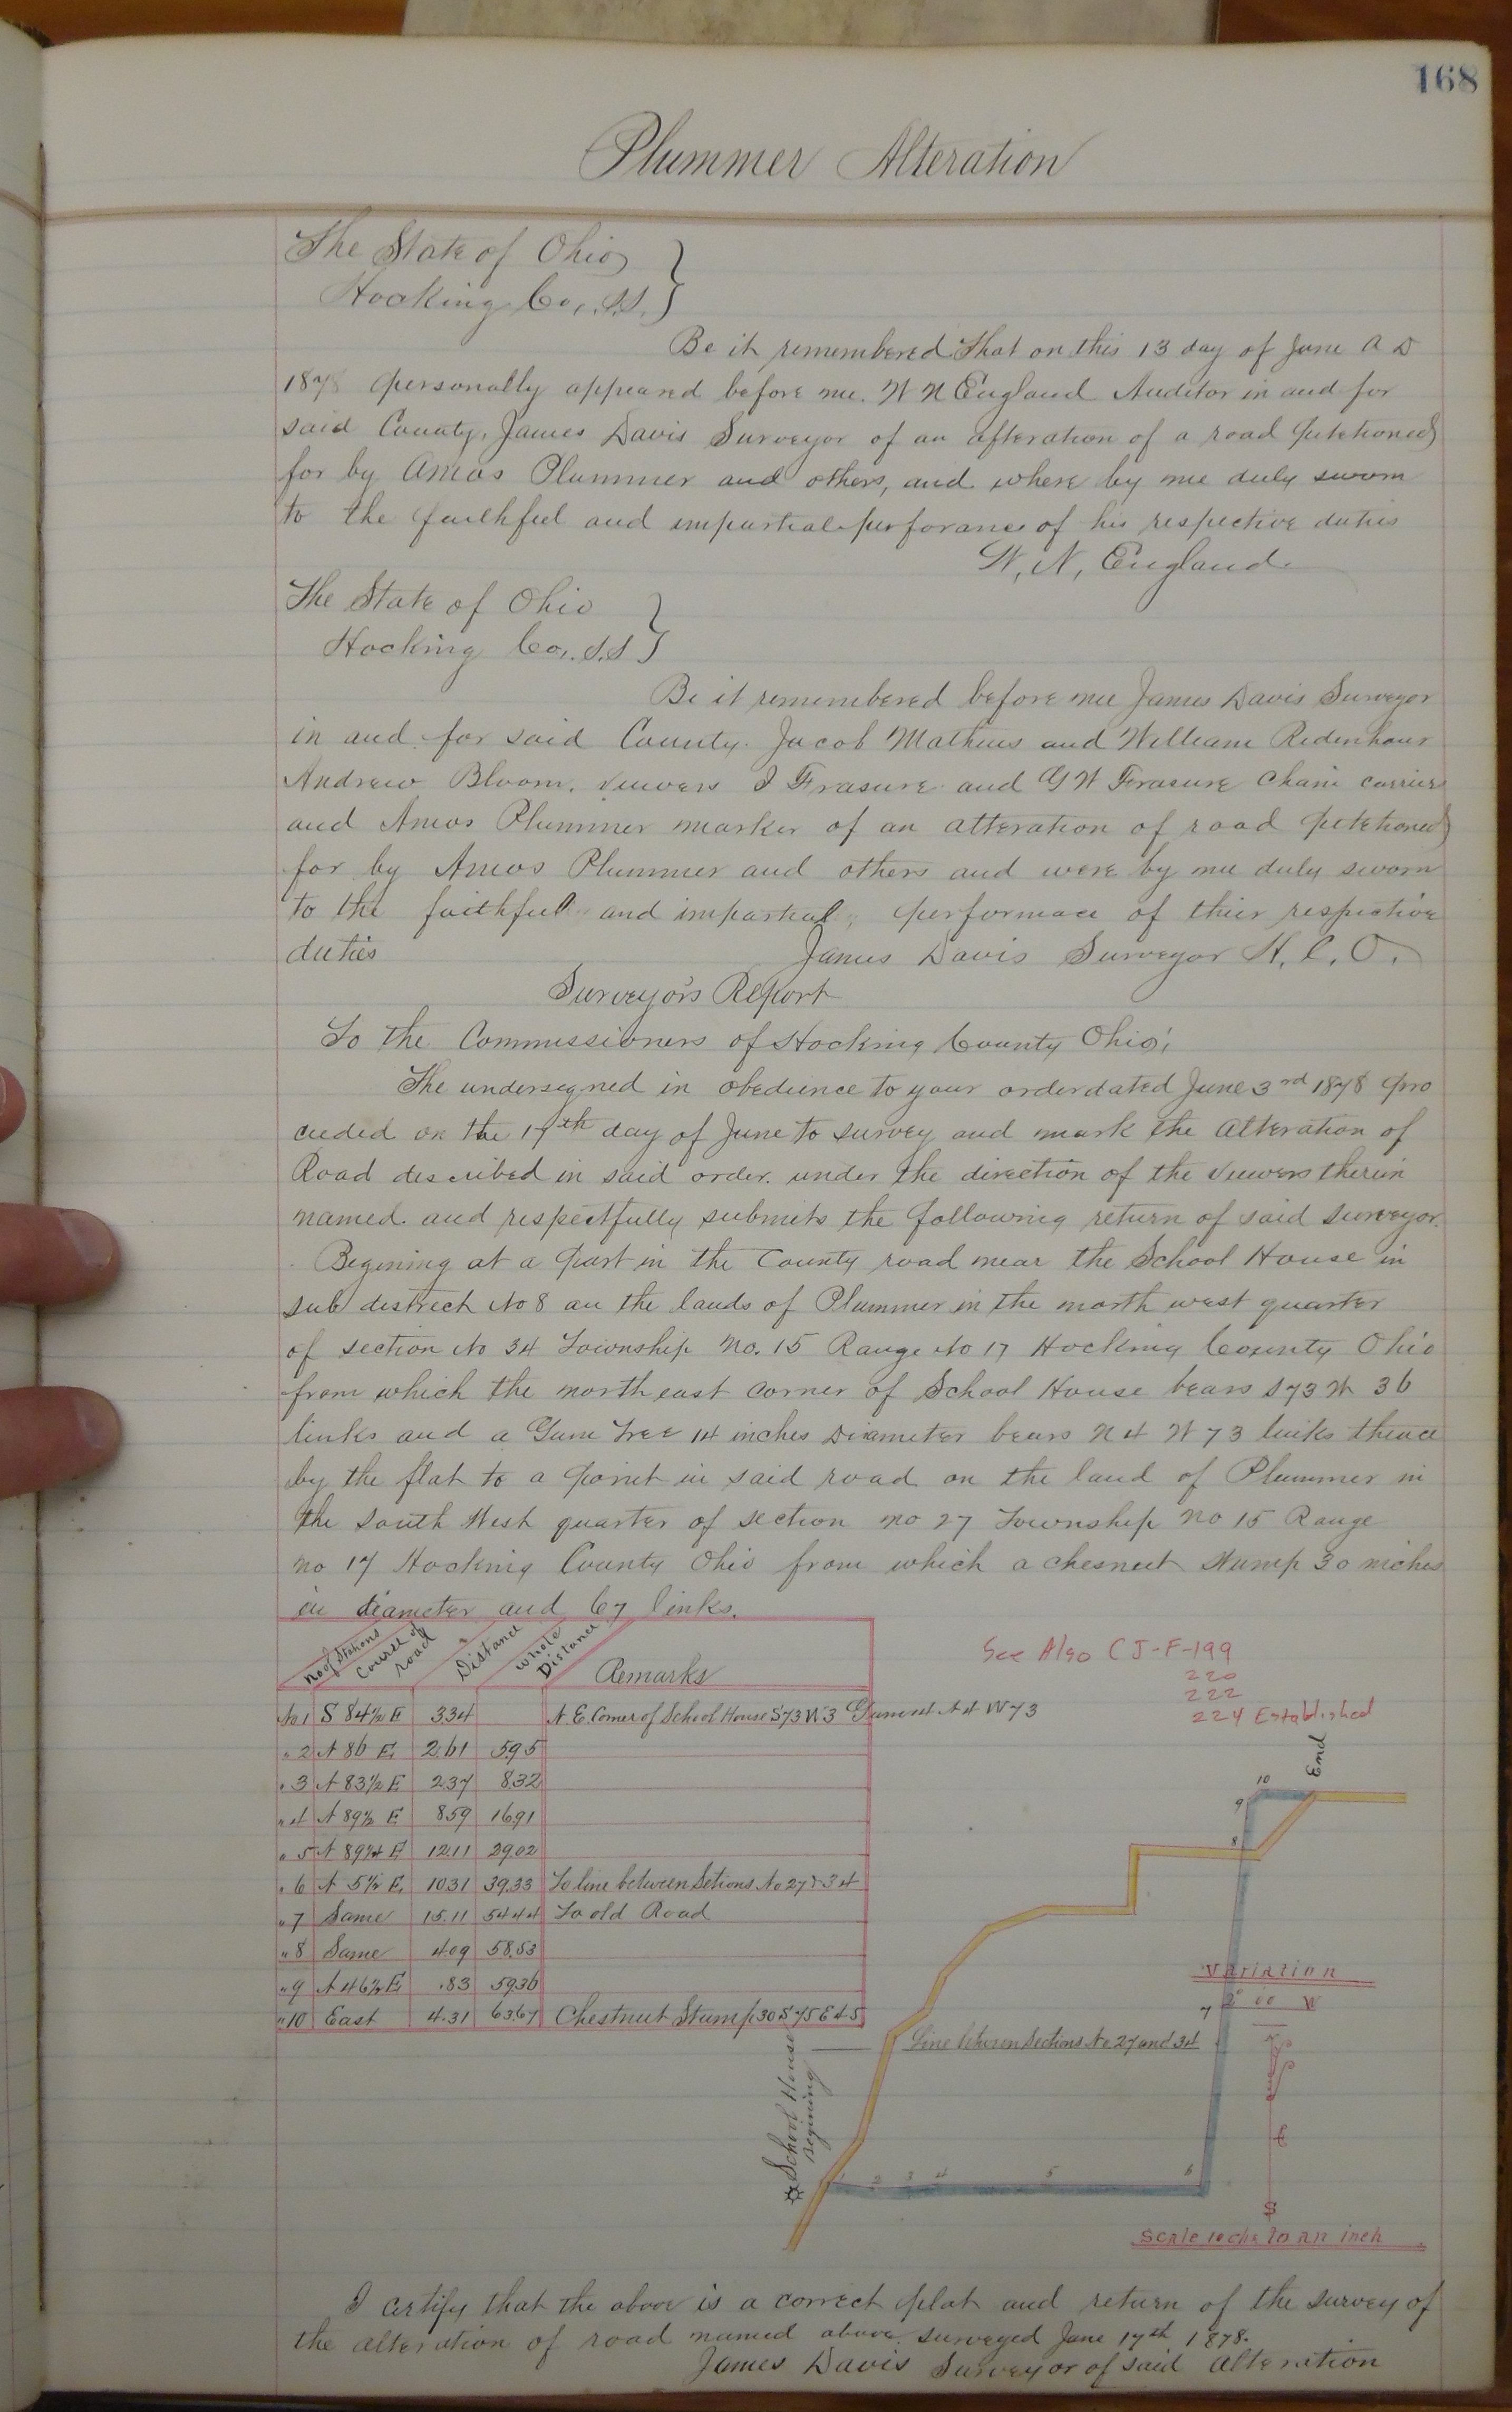 168
Plummer Alteration
The State of Ohio }
Hocking Co., S.S. }
Be it remembered that on this 13 day of June A D
1878 personally appeared before me. W N England Auditor in and for
said County, James Davis Surveyor of an alteration of a road petetioned
for by Amos Plummer and others, and where by me duly sworn
to the faithful and impartial perforance of his respective duties
W, N, England
The State of Ohio }
Hocking Co,. S.S }
Be it remembered before me James Davis Surveyor
in and for said County. Jacob Mathius and William Ridenhour
Andrew Bloom, viewers I Frasure and G W Frasure Chain carriers
and Amos Plummer marker of an alteration of road petetioned
for by Amos Plummer and others and were by me duly sworn
to the faithful and impartial performace of thier respective
duties James Davis Surveyor H, C, O,
Surveyors Report
To the Commissioners of Hocking County Ohio;
The undersigned in obedience to your order dated June 3rd 1878 pro
ceeded on the 17th day of June to survey and mark the alteration of
Road described in said order. under the direction of the viewers therein
named. and respectfully submits the following return of said surveyor.
Begining at a post in the County road near the School House in
sub district No 8 on the lands of Plummer in the north west quarter
of section No 34 Township No. 15 Range No 17 Hocking County Ohio
from which the north east corner of School House bears S 73 W 36
links and a Gum Tree 14 inches Diameter bears N 4 W 73 links thence
by the flat to a point in said road on the land of Plummer in
the South West quarter of section no 27 Township No 15 Range
no 17 Hocking County Ohio from which a chesnut stump 30 inches
in diameter and 67 links.
No of Stations Course of road Distance Whole Distance Remarks
No 1 S 84½ E 3.34 N. E. Corner of School House S 73 W 3 N 4 W 73
" 2 N 86 E. 2.61 5.95
" 3 N 83½ E 2.37 8.32
" 4 N 89½ E 8.59 16.91
" 5 N 89¼ E 12.11 29.02
" 6 N 5½ E. 10.31 39.33 To line between Setions No 27 & 34
" 7 Same 15.11 54.44 To old Road
" 8 Same 4.09 58.53
" 9 N 46½ E .83 59.36
" 10 East 4.31 63.67 Chestnut Stump 30 S 75 E 45
See Also C J-F-199
220
222
224 Established
End
10
9
8
Variation
7
2° 00 W
Line between Sections No 27 and 34
School House
Begining
1 2 3 4 5 6
S
Scale 10 chs to an inch
I certify that the above is a correct plat and return of the survey of
the alteration of road named above. surveyed June 17th 1878.
James Davis Surveyor of said alteration